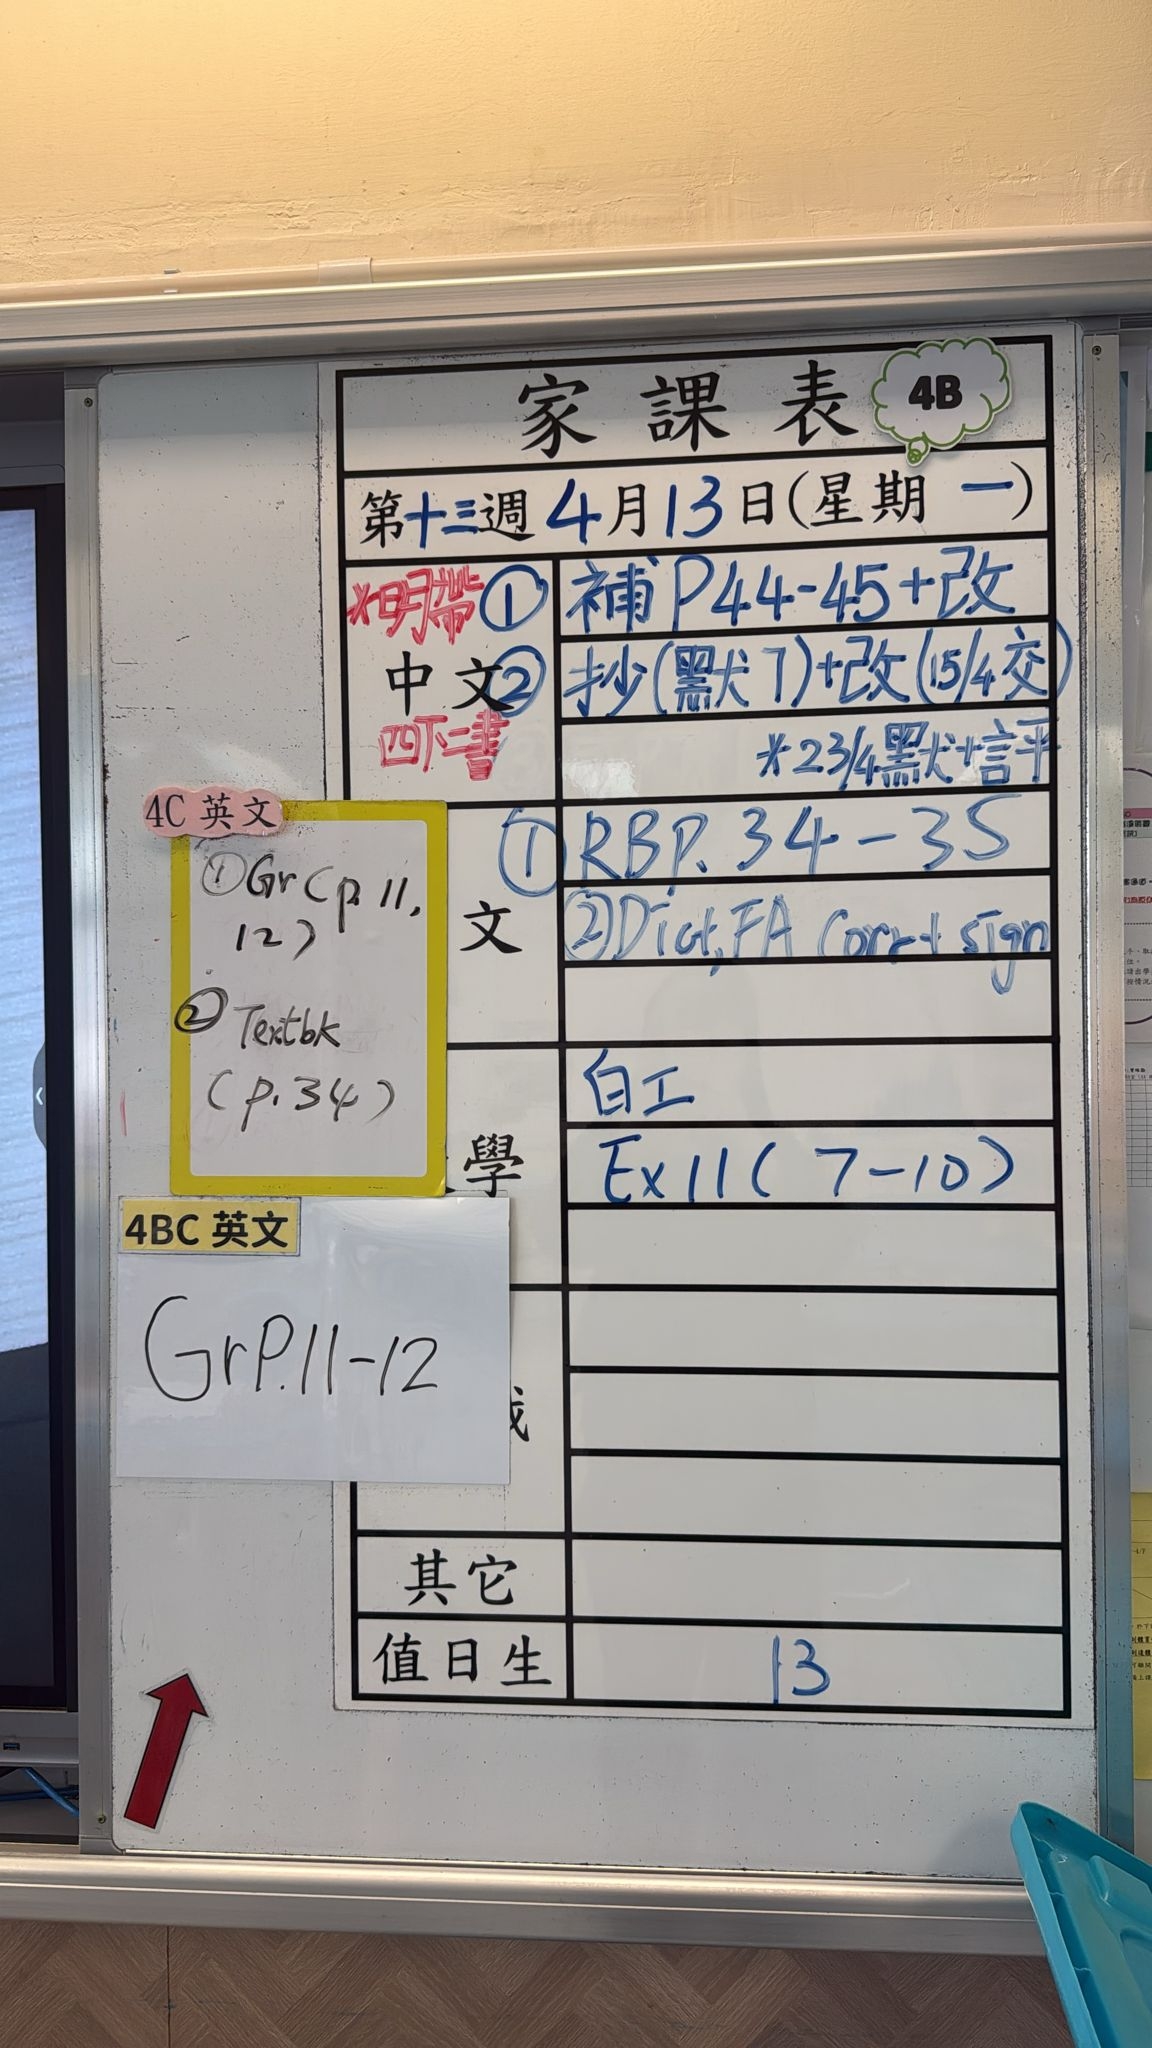 家課表
4B
第十三週4月13日(星期一)
*明帶
中文
四下二書
① 補P44-45+改
② 抄(默7)+改(15/4交)
*23/4默+評
文
① RBP.34-35
② Dict, FA Corr+sign
學
白工
Ex11(7-10)
其它
值日生
13
4C 英文
① Gr(p.11,
12)
② Textbk
(p.34)
4BC 英文
GrP.11-12